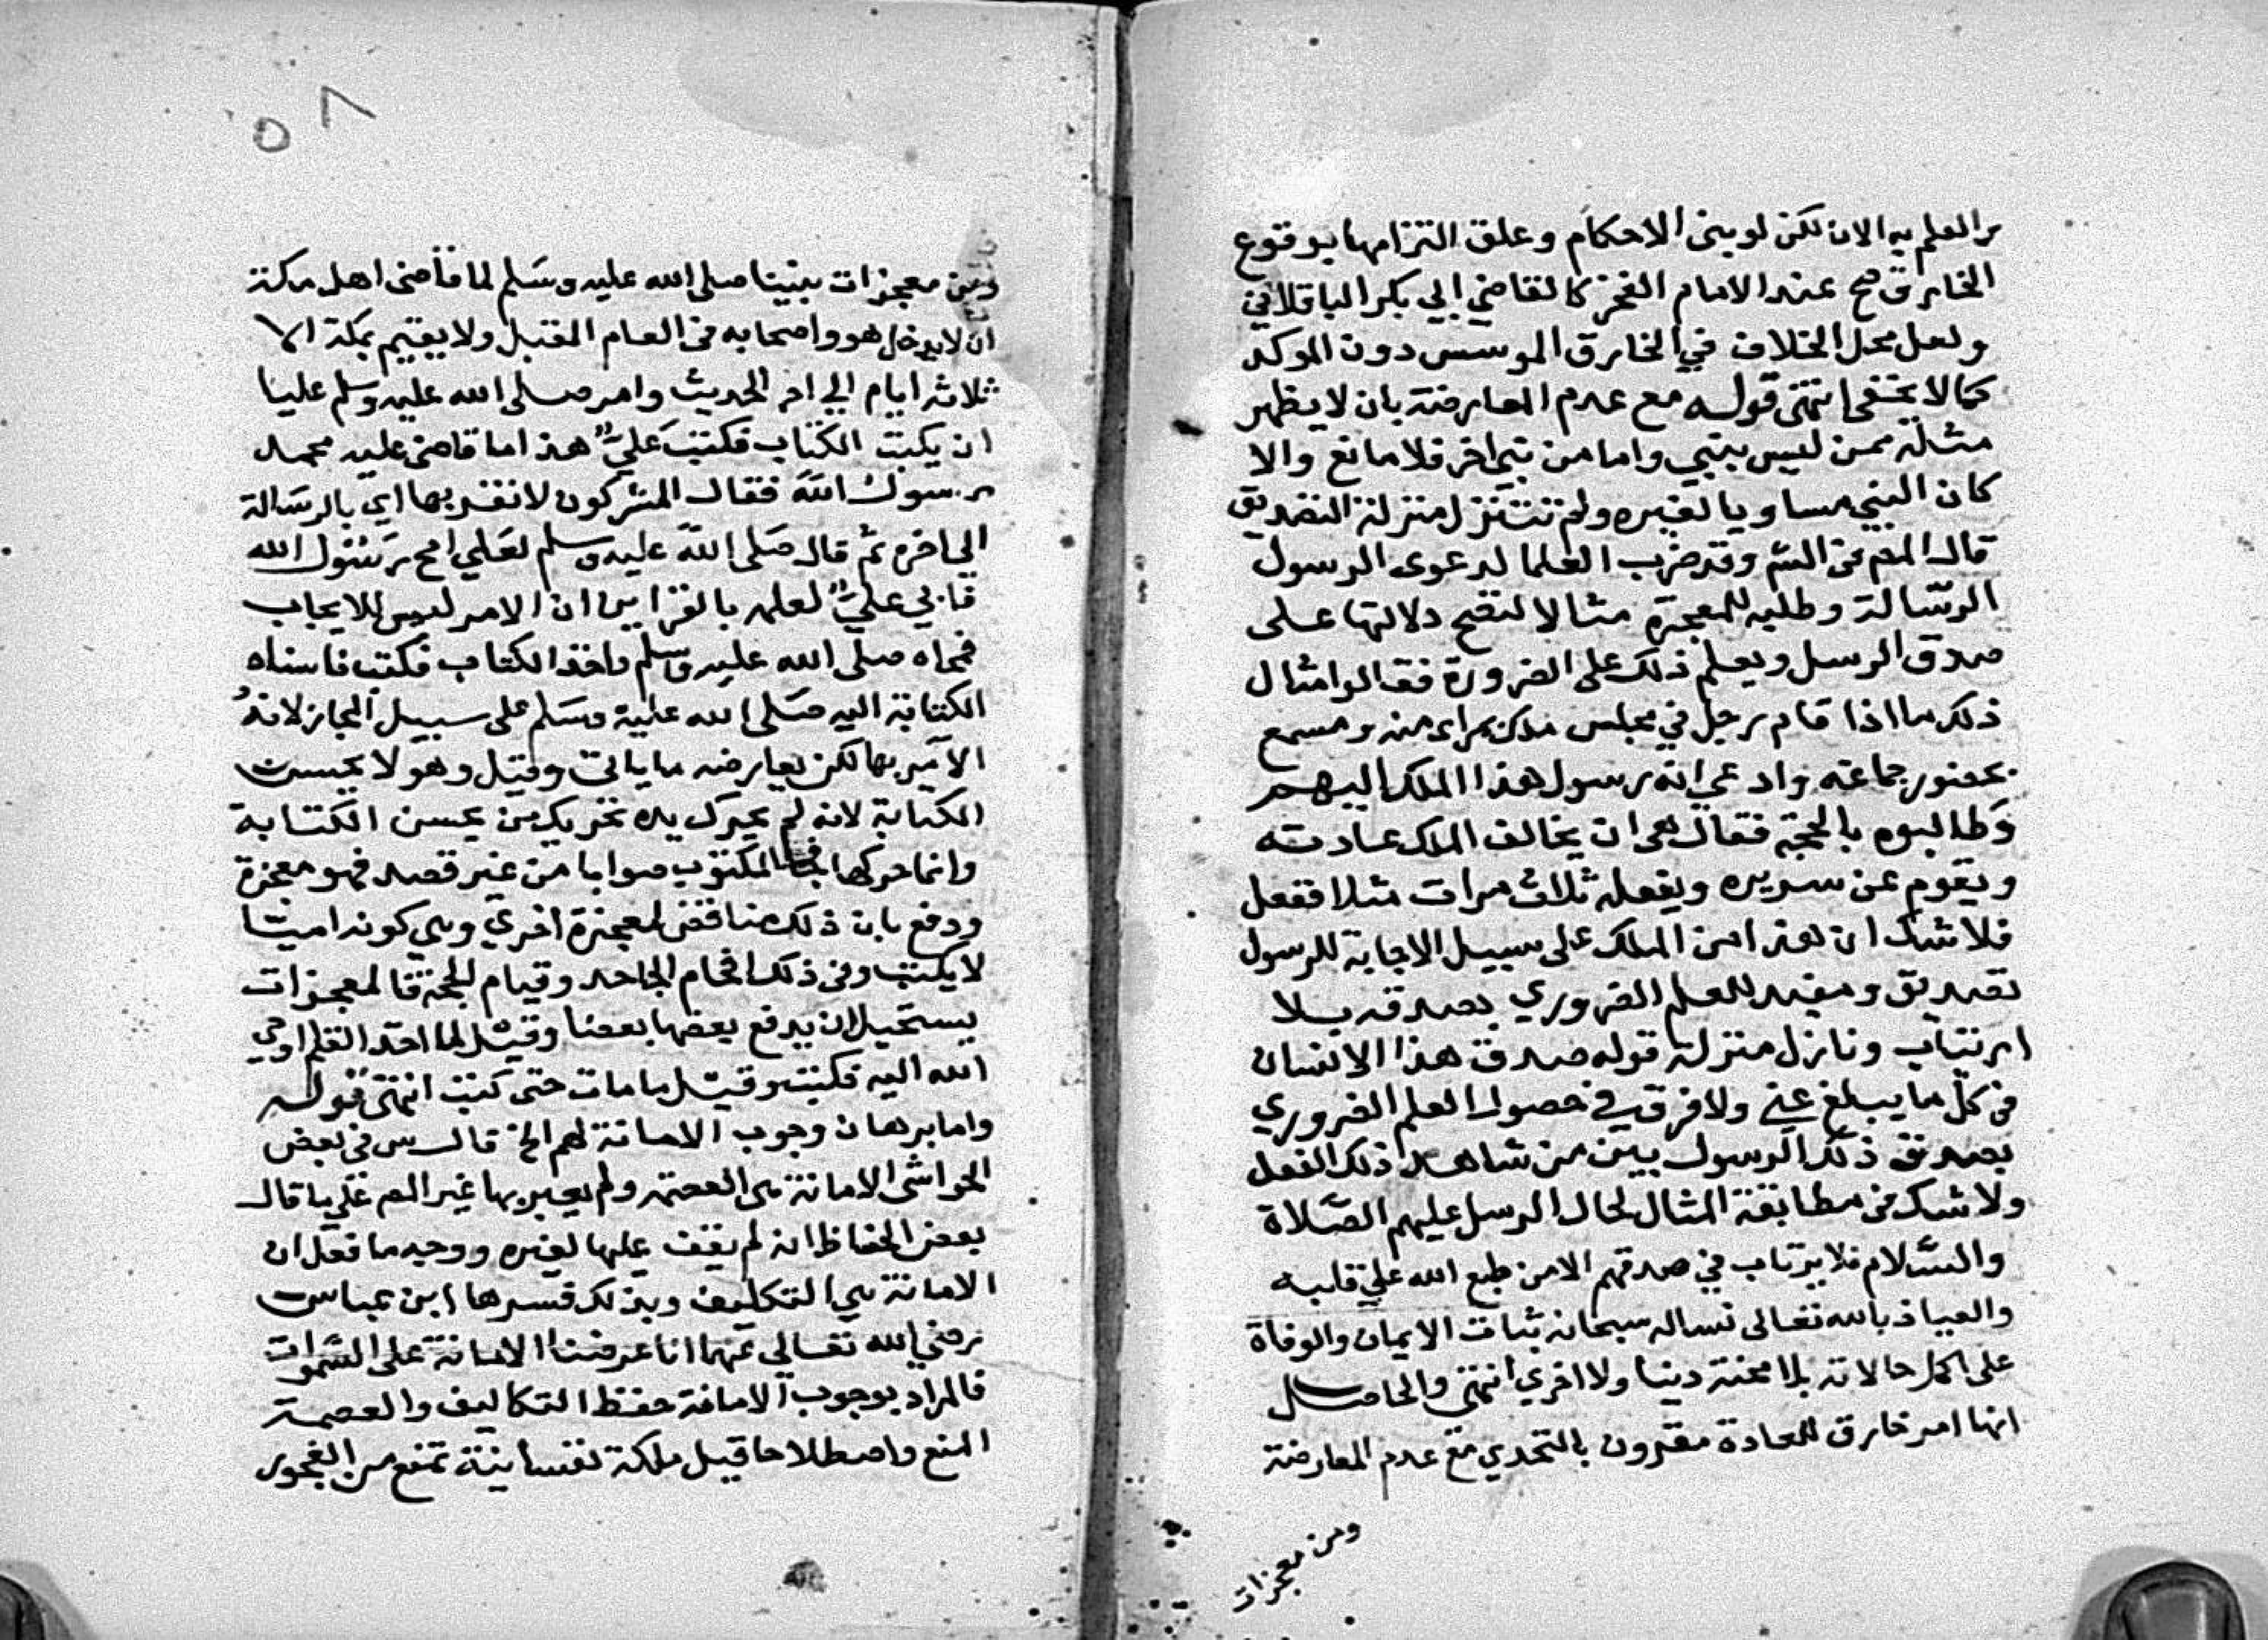 من العلم به الان لكن لو بنى الاحكام وعلق التزامها بوقوع
الخارق صح عند الامام الفخر كالقاضي ابي بكر الباقلاني
ولعل محل الخلاف في الخارق الموسس دون الموكد
كما لا يخفى انتهى قوله مع عدم المعارضة بان لا يظهر
مثله ممن ليس بنبي واما من نبي اخر فلا مانع والا
كان النبي مساويا لغيره ولم تتنزل منزلة التصديق
قال المص فى الشم وقد ضرب العلما لدعوى الرسول
الرسالة وطلبه للمعجزة مثالا لتضح دلالتها على
صدق الرسل ويعلم ذلك على الضرورة فقالوا مثال
ذلك ما اذا قام رجل في مجلس ملك بمراى منه ومسمع
بحضور جماعته وادعي انه رسول هذا الملك اليهم
وطالبوه بالحجة فقال هي ان يخالف الملك عادته
ويقوم عن سريره ويفعله ثلاث مرات مثلا ففعل
فلا شك ان هذا من الملك على سبيل الاجابة للرسول
تصديق ومفيد للعلم الضروري بصدقه بلا
ارتياب ونازل منزلة قوله صدق هذا الانسان
فى كل ما يبلغ عني ولا فرق في حصول العلم الضروري
بصدق ذلك الرسول بين من شاهد ذلك الفعل
ولا شك فى مطابقة المثال لحال الرسل عليهم الصلاة
والسلام فلا يرتاب في صدقهم الا من طبع الله علي قلبه
والعياذ بالله تعالى نساله سبحانه ثبات الايمان والوفاة
على اكمل حالاته بلا محنة دنيا ولا اخري انتهى والحاصل
انها امر خارق للعادة مقرون بالتحدي مع عدم المعارضة
ومن معجزات
٥٨
ومن معجزات نبينا صلى الله عليه وسلم لما قاضى اهل مكة
ان لا يدخل هو واصحابه فى العام المقبل ولا يقيم بمكة الا
ثلاثة ايام الي اخر الحديث وامر صلى الله عليه وسلم عليا
ان يكبت الكتاب فكتب علي هذا ما قاضى عليه محمد
رسول الله فقال المشركون لا نقر بها اي بالرسالة
الى اخره ثم قال صلى الله عليه وسلم لعلي امح رسول الله
فابي علي لعلمه بالقراين ان الامر ليس للايجاب
فمحاه صلى الله عليه وسلم واخذ الكتاب فكتب فاسناد
الكتابة اليه صلى الله عليه وسلم على سبيل المجاز لانه
الامر بها لكن يعارضه ما ياتى وقيل وهو لا يحسن
الكتابة لانه لم يحرك يده تحريك من يحسن الكتابة
وانما حركها فجا المكتوب صوابا من غير قصد فهو معجزة
ودفع بان ذلك مناقض لمعجزة اخري وهي كونه اميا
لا يكتب وفى ذلك افحام الجاحد وقيام الحجة فالمعجزات
يستحيل ان يدفع بعضها بعضا وقيل لما اخذ القلم اوحي
الله اليه فكتب وقيل ما مات حتى كتب انتهى قوله
واما برهان وجوب الامانة لهم الخ قال س فى بعض
الحواشى الامانة هى العصمة ولم يعبر بها غير المص على ما قال
بعض الحفاظ انه لم يقف عليها لغيره ووجه ما فعل ان
الامانة هي التكليف وبذلك فسرها ابن عباس
رضي الله تعالى عنهما انا عرضنا الامانة على السموات
فالمراد بوجوب الامانة حفظ التكاليف والعصمة
المنع واصطلاحا قيل ملكة نفسانية تمنع من الفجور